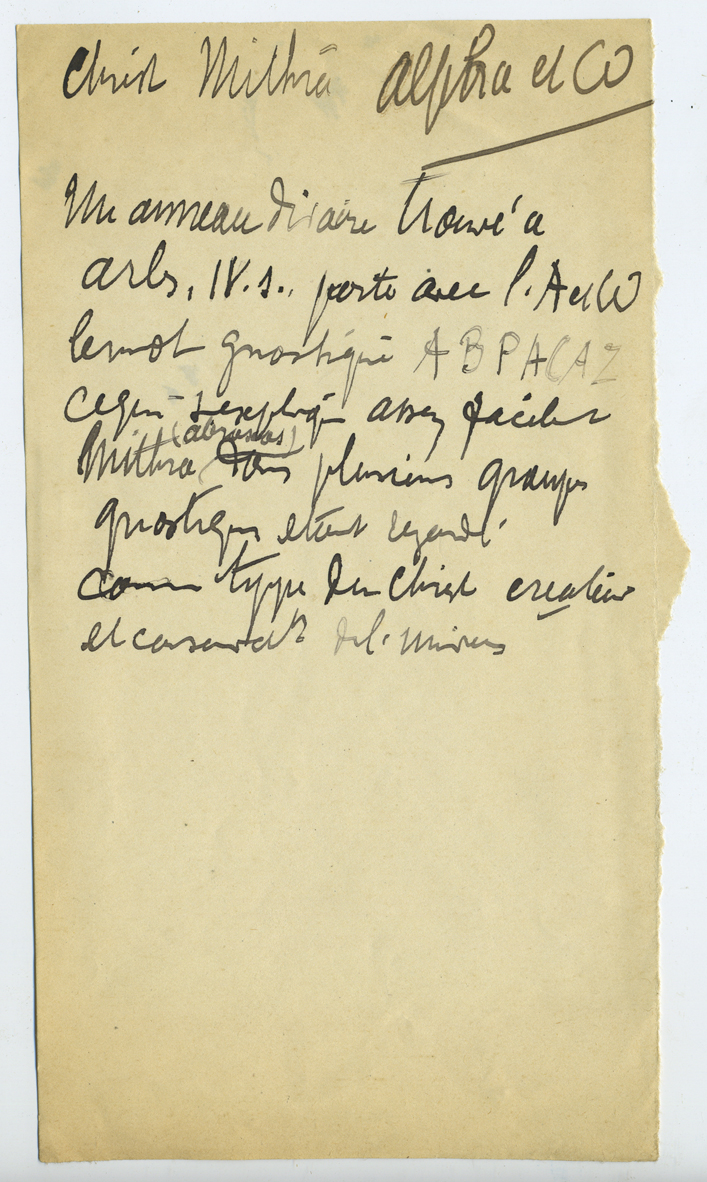 Christ Mithra alpha et Ѡ
Un anneau d'ivoire trouvé a
arles, IV. s., porte avec l'A et Ѡ
le mot gnostique ABPACAZ
ce qui s'explique assez facilet
(abrasas)
Mithra dans plusieurs groupes
gnostiques étant regardé
comme type du Christ createur
et conservatr de l'univers